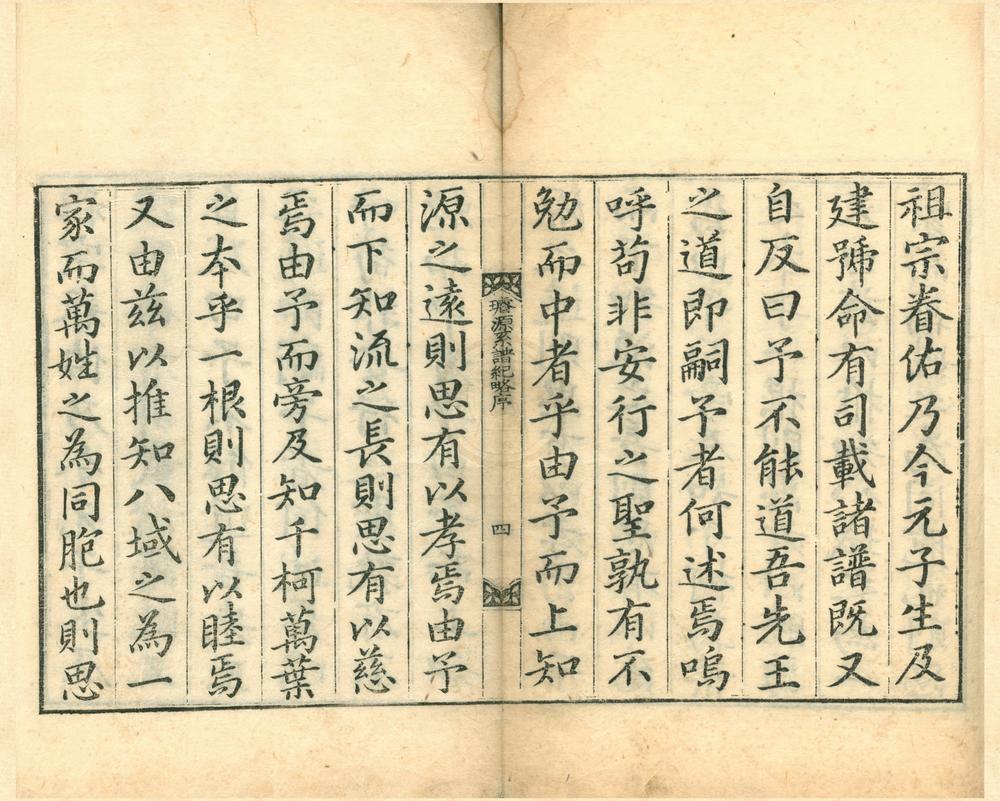 祖宗眷佑乃今元子生及
建號命有司載諸譜既又
自反曰予不能道吾先王
之道即嗣予者何述焉嗚
呼苟非安行之聖孰有不
勉而中者乎由予而上知
璿源系譜紀略序
四
源之遠則思有以孝焉由予
而下知流之長則思有以慈
焉由予而旁及知千柯萬葉
之本乎一根則思有以睦焉
又由茲以推知八域之為一
家而萬姓之為同胞也則思